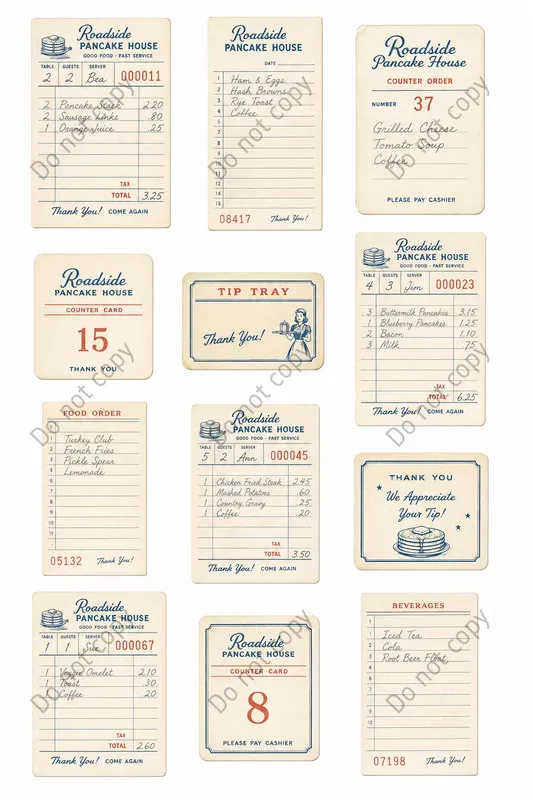 Roadside
PANCAKE HOUSE
GOOD FOOD · FAST SERVICE
TABLE GUESTS SERVER
2 2 Bea 000011
2 Pancake Stack 2.20
2 Sausage Links .80
1 Orange Juice .25
TAX
TOTAL 3.25
Thank You! COME AGAIN
Roadside
PANCAKE HOUSE
DATE
1 Ham & Eggs
2 Hash Browns
3 Rye Toast
4 Coffee
5
6
7
8
9
10
11
12
13
14
15
08417 Thank You!
Roadside
Pancake House
COUNTER ORDER
NUMBER 37
Grilled Cheese
Tomato Soup
Coffee
PLEASE PAY CASHIER
Roadside
PANCAKE HOUSE
COUNTER CARD
15
THANK YOU
TIP TRAY
Thank You!
Roadside
PANCAKE HOUSE
GOOD FOOD · FAST SERVICE
TABLE GUESTS SERVER
4 3 Jim 000023
3 Buttermilk Pancakes 3.15
1 Blueberry Pancakes 1.25
2 Bacon 1.10
3 Milk .75
TAX
TOTAL 6.25
Thank You! COME AGAIN
FOOD ORDER
Turkey Club
French Fries
Pickle Spear
Lemonade
05132 Thank You!
Roadside
PANCAKE HOUSE
GOOD FOOD · FAST SERVICE
TABLE GUESTS SERVER
5 2 Ann 000045
1 Chicken Fried Steak 2.45
1 Mashed Potatoes .60
1 Country Gravy .25
1 Coffee .20
TAX
TOTAL 3.50
Thank You! COME AGAIN
THANK YOU
We Appreciate
Your Tip!
Roadside
PANCAKE HOUSE
GOOD FOOD · FAST SERVICE
TABLE GUESTS SERVER
1 1 Sue 000067
1 Veggie Omelet 2.10
1 Toast .30
1 Coffee .20
TAX
TOTAL 2.60
Thank You! COME AGAIN
Roadside
PANCAKE HOUSE
COUNTER CARD
8
PLEASE PAY CASHIER
BEVERAGES
Iced Tea
Cola
Root Beer Float
07198 Thank You!
Do not copy
Do not copy
Do not copy
Do not copy
Do not copy
Do not copy
Do not copy
Do not copy
Do not copy